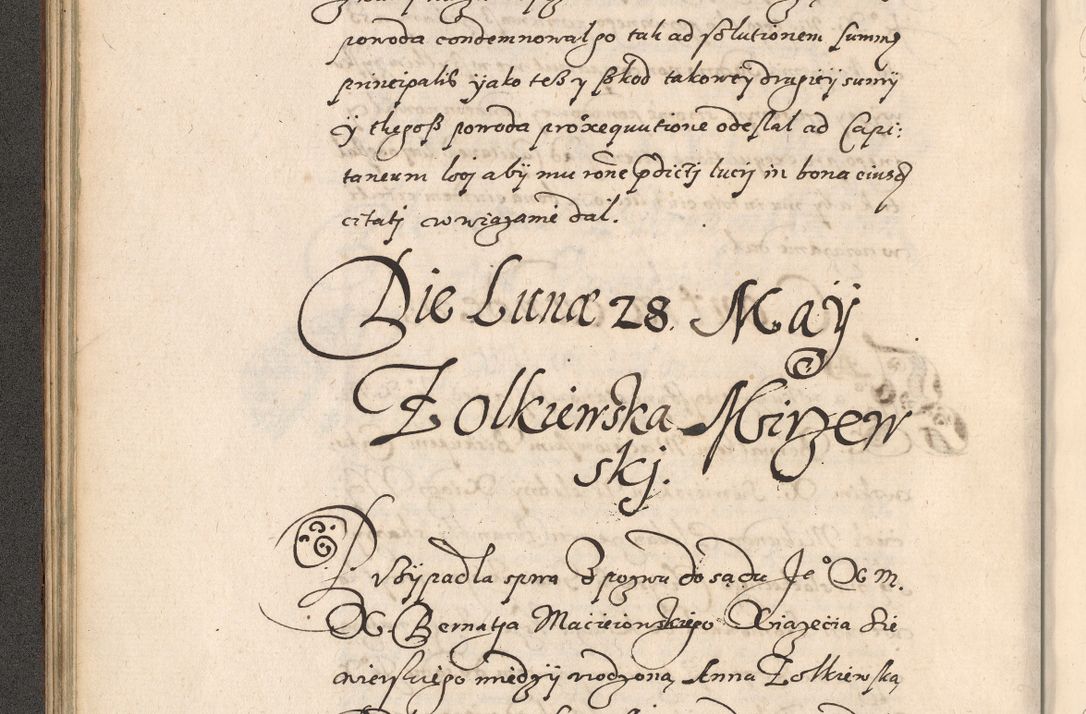 powoda condemnowal go tak ad solutionem summę
principalis yako tesz y szkod takowey drugiey sumy
y thegosz powoda pro exequutione odeslal ad Capi:
taneum loci aby mu rone pdictj lucij in bona eiusd
citatj cwwiązanie dal.
Die Lunæ 28. Maÿ
Zolkiewska Mirzew
skj.
Wÿpadla spra z pozwu do sądu Je° X M.
X. Bernatja Macieiowskiego Xiązęcia Sie
wierskiego miedzÿ urodzoną Anna Zolkiewską